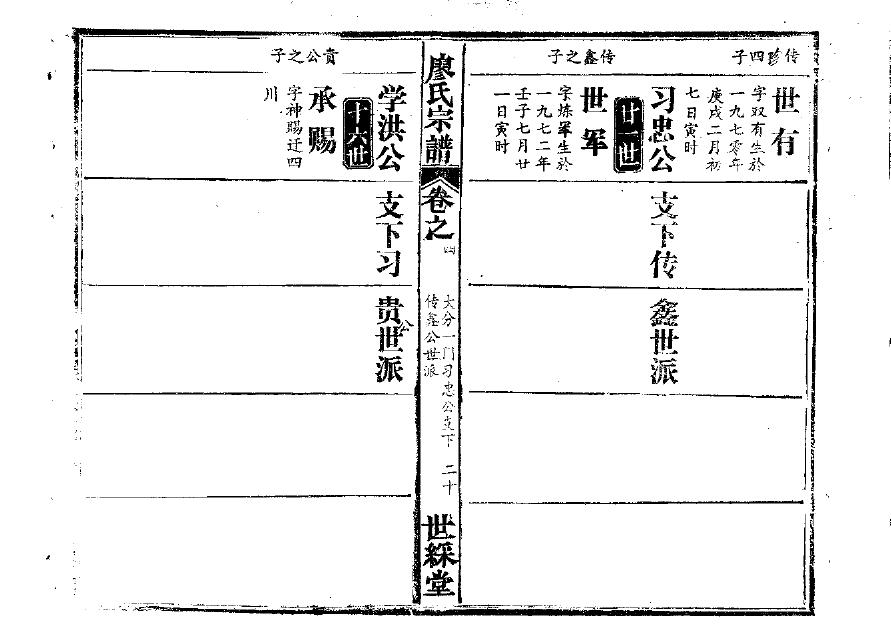 传珍四子
世有
字双有生於
一九七零年
庚戌二月初
七日寅时
习忠公支下传鑫世派
廿一世
传鑫之子
世军
字炼军生於
一九七二年
壬子七月廿
一日寅时
廖氏宗譜
卷之四
大分一门习忠公支下
传鑫公世派
二十
世綵堂
学洪公支下习贵公世派
十六世
贵公之子
承赐
字神赐迁四
川